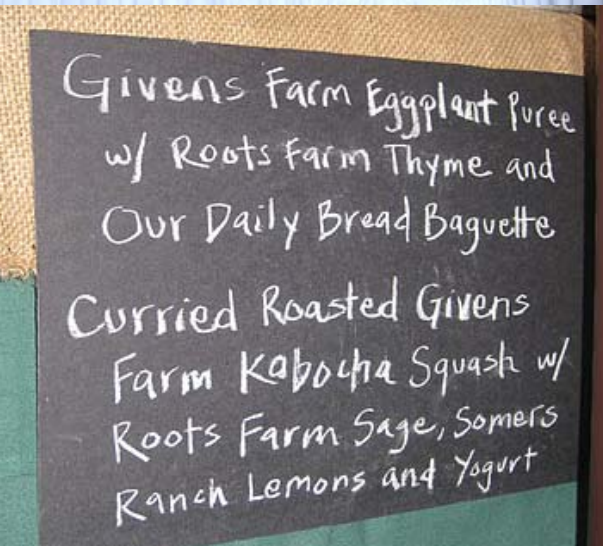 Givens Farm Eggplant Puree
w/ Roots Farm Thyme and
Our Daily Bread Baguette
Curried Roasted Givens
Farm Kabocha Squash w/
Roots Farm Sage, Somers
Ranch Lemons and Yogurt